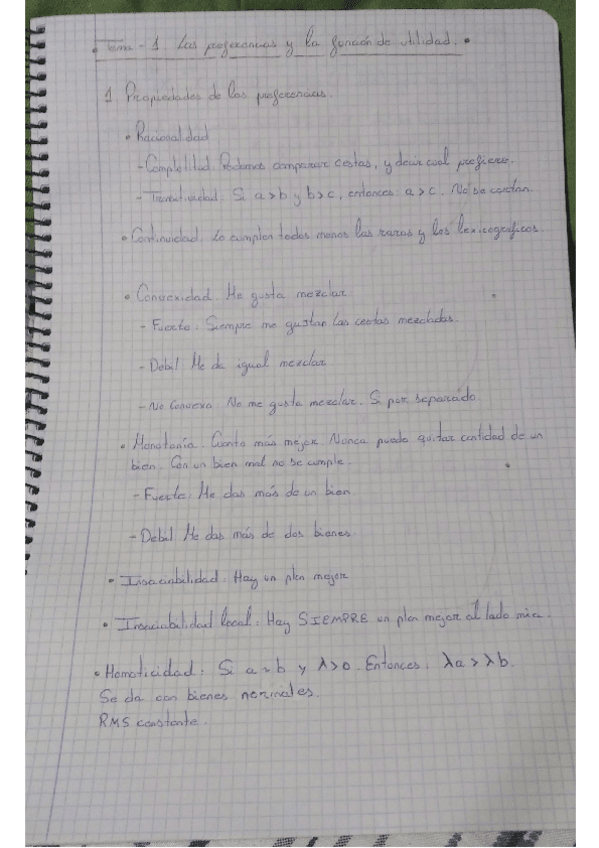 • Tema - 1 Las preferencias y la función de utilidad. •
1 Propiedades de las preferencias.
• Racionalidad
- Completitud. Podemos comparar cestas, y decir cual prefiero.
- Transitividad. Si a>b y b>c, entonces: a>c. No se cortan.
• Continuidad. Lo cumplen todas menos las raras y las lexicograficas.
• Convexidad. Me gusta mezclar
- Fuerte: Siempre me gustan las cestas mezcladas.
- Debil Me da igual mezclar
- No Convexa No me gusta mezclar. Si por separado
• Monotonía. Cuanto más mejor. Nunca puedo quitar cantidad de un
bien. Con un bien mal no se cumple.
- Fuerte: Me das más de un bien
- Debil Me das más de dos bienes.
• Insaciabilidad: Hay un plan mejor
• Insaciabilidad local: Hay SIEMPRE un plan mejor al lado mio.
• Homoticidad: Si a ~ b y λ>0. Entonces: λa > λb.
Se da con bienes normales.
RMS constante.